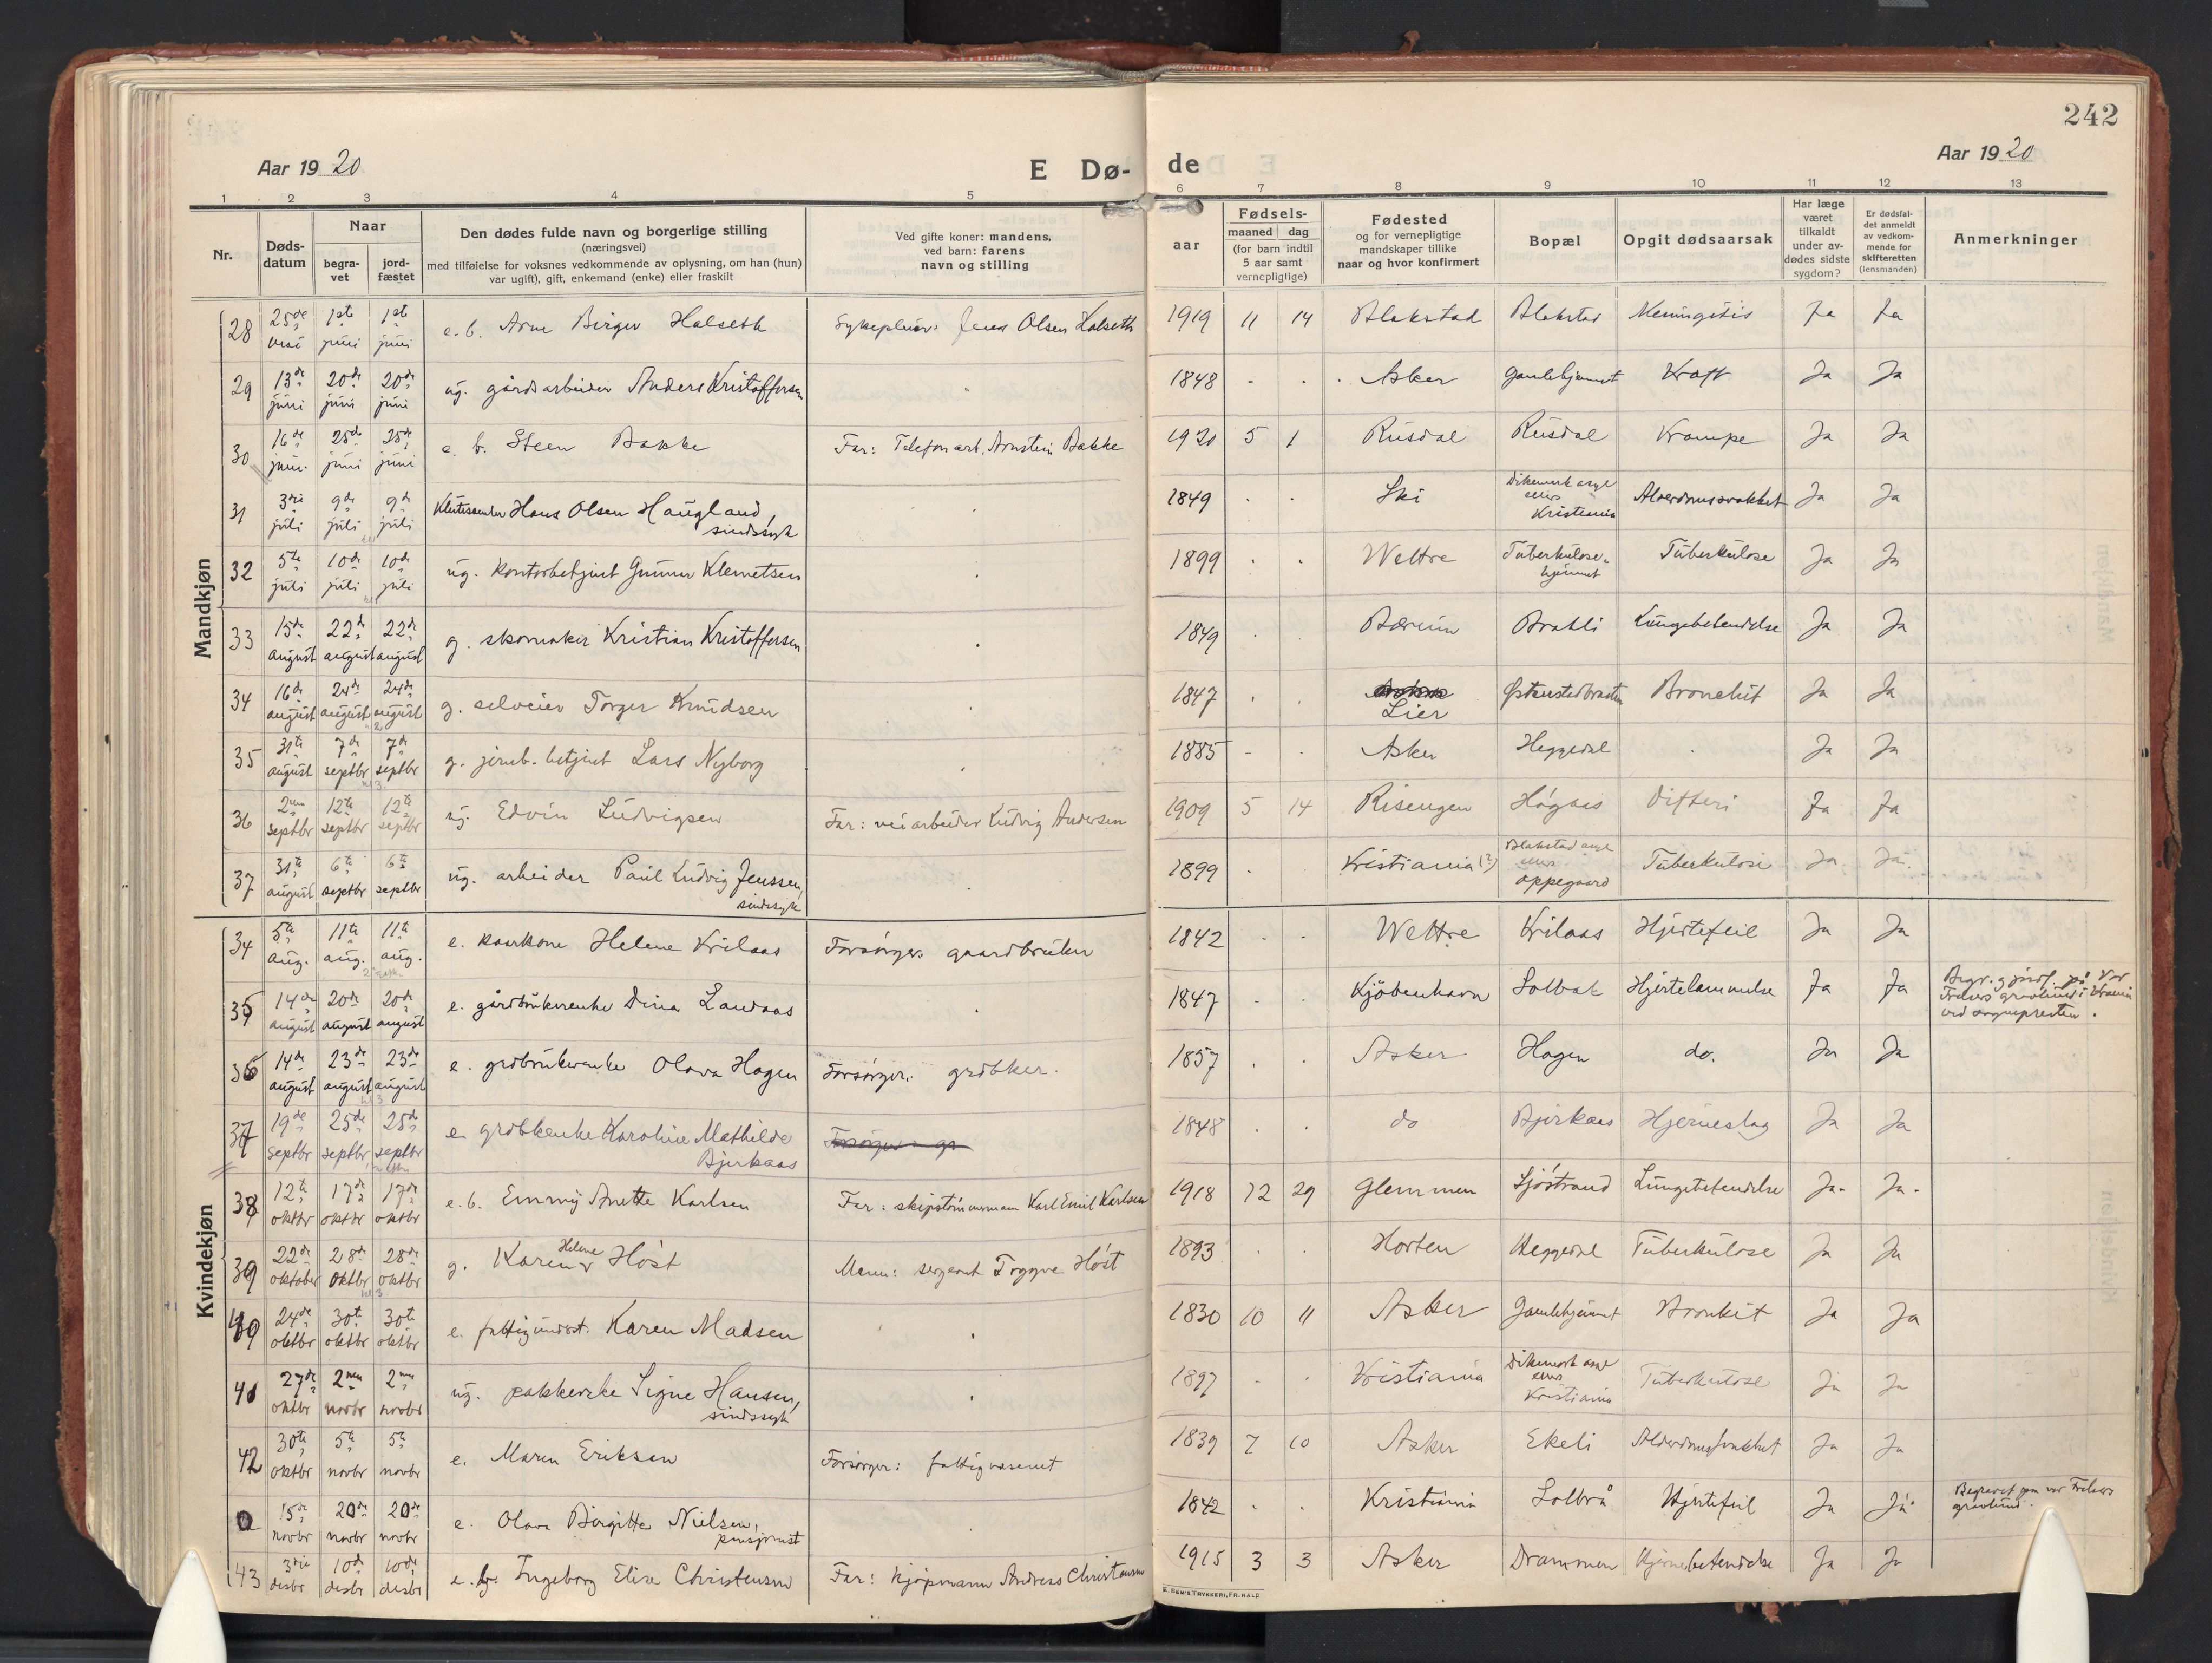 242
Aar 1920
E Dø-
de
Aar 1920
1 2 3 4 5 6 7 8 9 10 11 12 13
Nr.
Døds-
datum
Naar
begra-
vet
jord-
fæstet
Den dødes fulde navn og borgerlige stilling
(næringsvei)
med tilføielse for voksnes vedkommende av oplysning, om han (hun)
var ugift), gift, enkemand (enke) eller fraskilt
Ved gifte koner: mandens,
ved barn: farens
navn og stilling
aar
Fødsels-
maaned dag
(for barn indtil
5 aar samt
vernepligtige)
Fødested
og for vernepligtige
mandskaper tillike
naar og hvor konfirmert
Bopæl
Opgit dødsaarsak
Har læge
været
tilkaldt
under av-
dødes sidste
sygdom?
Er dødsfal-
det anmeldt
av vedkom-
mende for
skifteretten
(lensmanden)
Anmerkninger
Mandkjøn
28 25de mai 1ste juni 1ste juni e.b. Arne Birger Halseth Sykepleier Jens Olsen Halseth 1919 11 14 Blakstad Blakstad Meningitis Ja Ja
29 13de juni 20de juni 20de juni ug. gårdsarbeider Anders Kristoffersen 1848 Asker Gamlehjemmet Kræft Ja Ja
30 16de juni 25de juni 25de juni e.b. Steen Bakke Far: Telefonarb. Arnstein Bakke 1920 5 1 Rusdal Rusdal Krampe Ja Ja
31 3die juli 9de juli 9de juli Hans Olsen Haugland, sindssyk 1849 Ski Dikemark asyl ellers Kristiania Alderdomssvakhet Ja Ja
32 5te juli 10de juli 10de juli ug. kontorbetjent Gunnar Klemetsen 1899 Wettre Tuberkulose-hjemmet Tuberkulose Ja Ja
33 15de august 22de august 22de august g. skomaker Kristian Kristoffersen 1849 Bærum Bratli Lungebetendelse Ja Ja
34 16de august 24de august 24de august g. selveier Torger Knudsen 1847 Lier Østenstadbraaten Bronchit Ja Ja
35 31te august 7de septbr 7de septbr g. jernb. betjent Lars Nyborg 1885 Asker Heggedal Ja Ja
36 2den septbr 12te septbr 12te septbr ug. Edvin Ludvigsen Far: veiarbeider Ludvig Andersen 1909 5 14 Risengen Høgaas Difteri Ja Ja
37 31te august 6te septbr 6te septbr ug. arbeider Paul Ludvig Jenssen, sindssyk 1899 Kristiania (?) Blakstad asyl ellers Oppegaard Tuberkulose Ja Ja
Kvindekjøn
34 5te aug. 11te aug. 11te aug. e. kaarkone Helene Krilaas Forsørger: gaardbruker 1842 Wettre Krilaas Hjertefeil Ja Ja
35 14de august 20de august 20de august e. gårdbrukerenke Dina Landaas 1847 Kjøbenhavn Solbak Hjertelammelse Ja Ja Begr. og jordf. på Vor Frelsers gravlund i Krania ved sognepresten.
36 14de august 23de august 23de august e. grdbrukerenke Olava Hagen Forsørger: grdbker. 1857 Asker Hagen do. Ja Ja
37 19de septbr 25de septbr 25de septbr e. grdbkenke Karoline Mathilde Bjerkaas 1848 do Bjerkaas Hjerneslag Ja Ja
38 12te oktbr 17de oktbr 17de oktbr e.b. Emmy Anette Karlsen Far: skipstømmermann Karl Emil Karlsen 1918 12 29 Glemmen Sjøstrand Lungebetendelse Ja. Ja.
39 22de oktober 28de oktbr 28de oktbr g. Karen Helene Høst Mann: sergeant Tryggve Høst 1893 Horten Heggedal Tuberkulose Ja Ja
40 24de oktbr 30te oktbr 30te oktbr e. fattigunderst. Karen Madsen 1830 10 11 Asker Gamlehjemmet Bronkit Ja Ja
41 27de oktbr 2den novbr 2den novbr ug. pakkerske Signe Hansen, sindssyk 1897 Kristiania Dikemark asyl ellers Kristiania Tuberkulose Ja Ja
42 30te oktbr 5te novbr 5te novbr e. Maren Eriksen Forsørger: fattigvæsenet 1839 7 10 Asker Ekeli Alderdomssvakhet Ja Ja
0 15de novbr 20de novbr 20de novbr e. Olava Birgitte Nielsen, pensjonist 1842 Kristiania Solbrå Hjertefeil Ja Ja Begravet paa vor Frelsers gravlund.
43 3die desbr 10de desbr 10de desbr e.b. Ingeborg Elise Christensen Far: kjøpmann Andreas Christensen 1915 3 3 Asker Drammen Hjernebetendelse Ja Ja
E. SEM'S TRYKKERI, FR.HALD